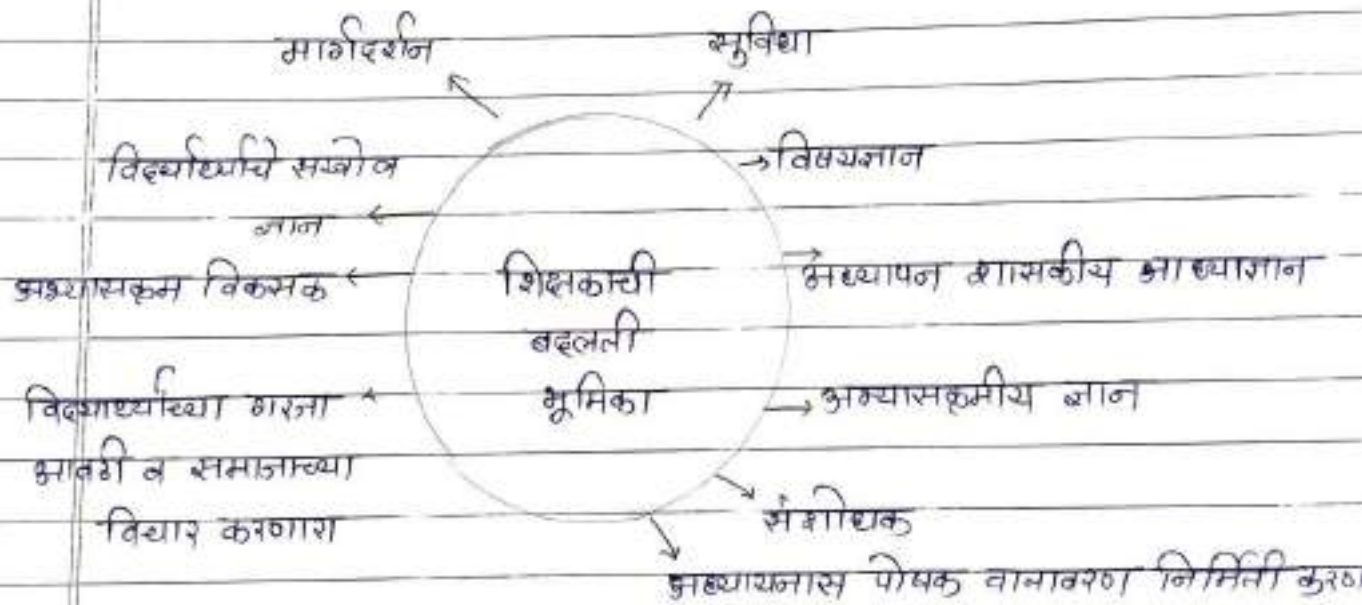 मार्गदर्शन
सुविधा
विद्यार्थ्यांचे सखोल
ज्ञान
विषयज्ञान
अभ्यासक्रम विकसक
शिक्षकाची
बदलती
भूमिका
अध्यापन शासकीय
अभ्यासक्रमीय ज्ञान
विद्यार्थ्यांच्या गरजा
आवडी व समाजाच्या
विचार करणारा
संशोधक
अध्यायनास पोषक वातावरण निर्मिती